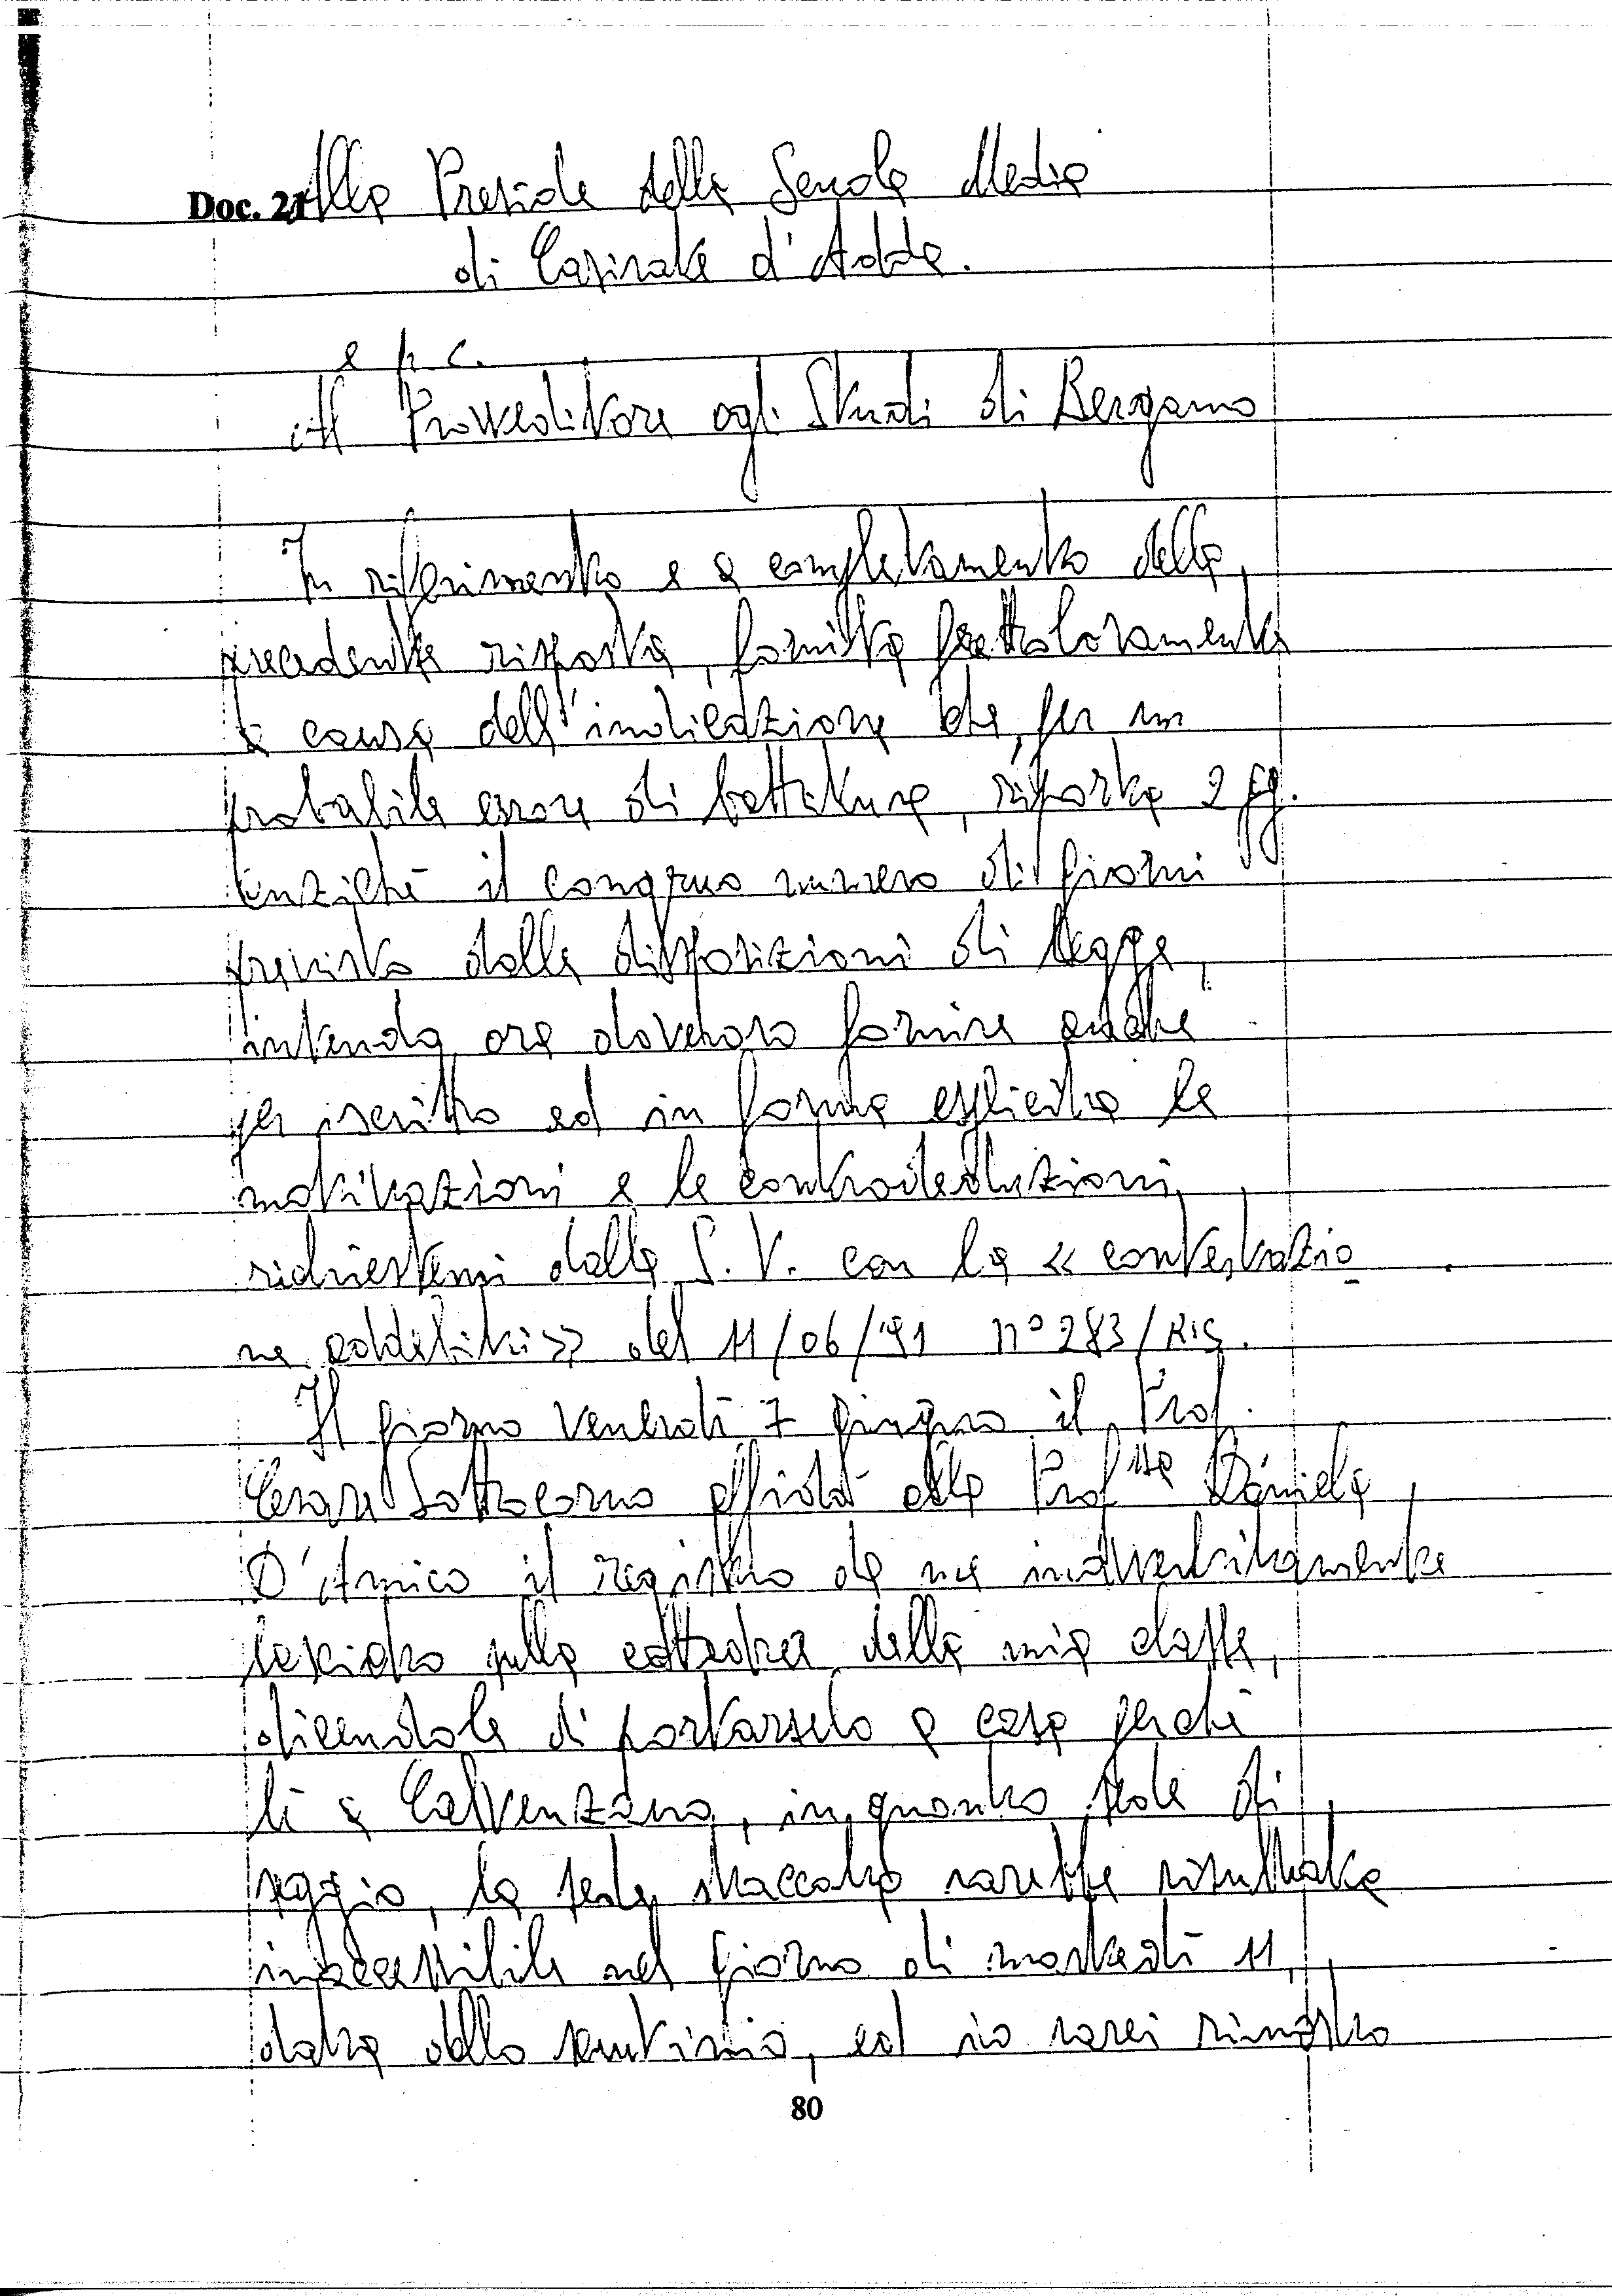 Doc. 21
Alla Preside della Scuola Media
di Casirate d'Adda.
e p.c.
Al Provveditore agli Studi di Bergamo
In riferimento e a completamento della
precedente risposta, fornita frettolosamente
a causa dell'indicazione che, per un
probabile errore di battitura, riporta 2 gg.
anziché il congruo numero di giorni
previsto dalle disposizioni di legge,
intendo ora doveroso fornire anche
per iscritto ed in forma esplicita le
motivazioni e le controdeduzioni,
richiestemi dalla S.V. con la « contestazio
ne addebiti» del 11/06/'91 n° 283/RIS.
Il giorno venerdì 7 giugno il Prof.
Cesare Sottocorno affidò alla Prof.ssa Daniela
D'Amico il registro da me inavvertitamente
lasciato sulla cattedra della mia classe,
dicendole di portarselo a casa perché
lì a Calvenzano, in quanto sede di
seggio, la sede staccata sarebbe risultata
inaccessibile nel giorno di martedì 11,
data dello scrutinio, ed io sarei rimasto
80